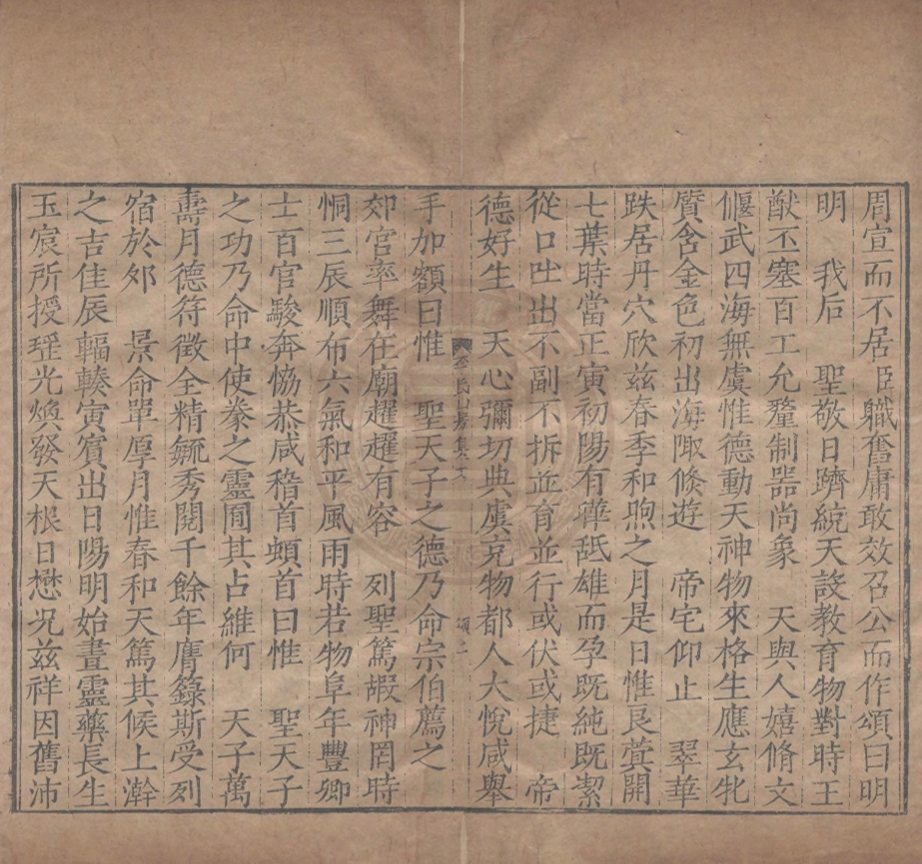 周宣而不居臣職奮庸敢效召公而作頌曰明
明　我后　聖敬日躋統天設教育物對時王
猷丕塞百工允釐制器尚象　天與人嬉脩文
偃武四海無虞惟德動天神物來格生應玄牝
質含金色初出海陬倏遊　帝宅仰止　翠華
跌居丹穴欣兹春季和煦之月是日惟良蓂開
七葉時當正寅初陽有聲舐雄而孕既純既潔
從口吐出不副不拆並育並行或伏或捷　帝
德好生　天心彌切典虞充物都人大悅咸舉
李氏山房集　頌二
手加額曰惟　聖天子之德乃命宗伯薦之
郊宮率舞在廟趯趯有容　列聖篤嘏神罔時
恫三辰順布六氣和平風雨時若物阜年豐卿
士百官駿奔恊恭咸稽首頓首曰惟　聖天子
之功乃命中使豢之靈囿其占維何　天子萬
壽月德符徵全精毓秀閱千餘年膺籙斯受列
宿於郊　景命單厚月惟春和天篤其候上澣
之吉佳辰輻輳寅賓出日陽明始晝靈藥長生
玉宸所授瑶光煥發天根日懋况兹祥因舊沛